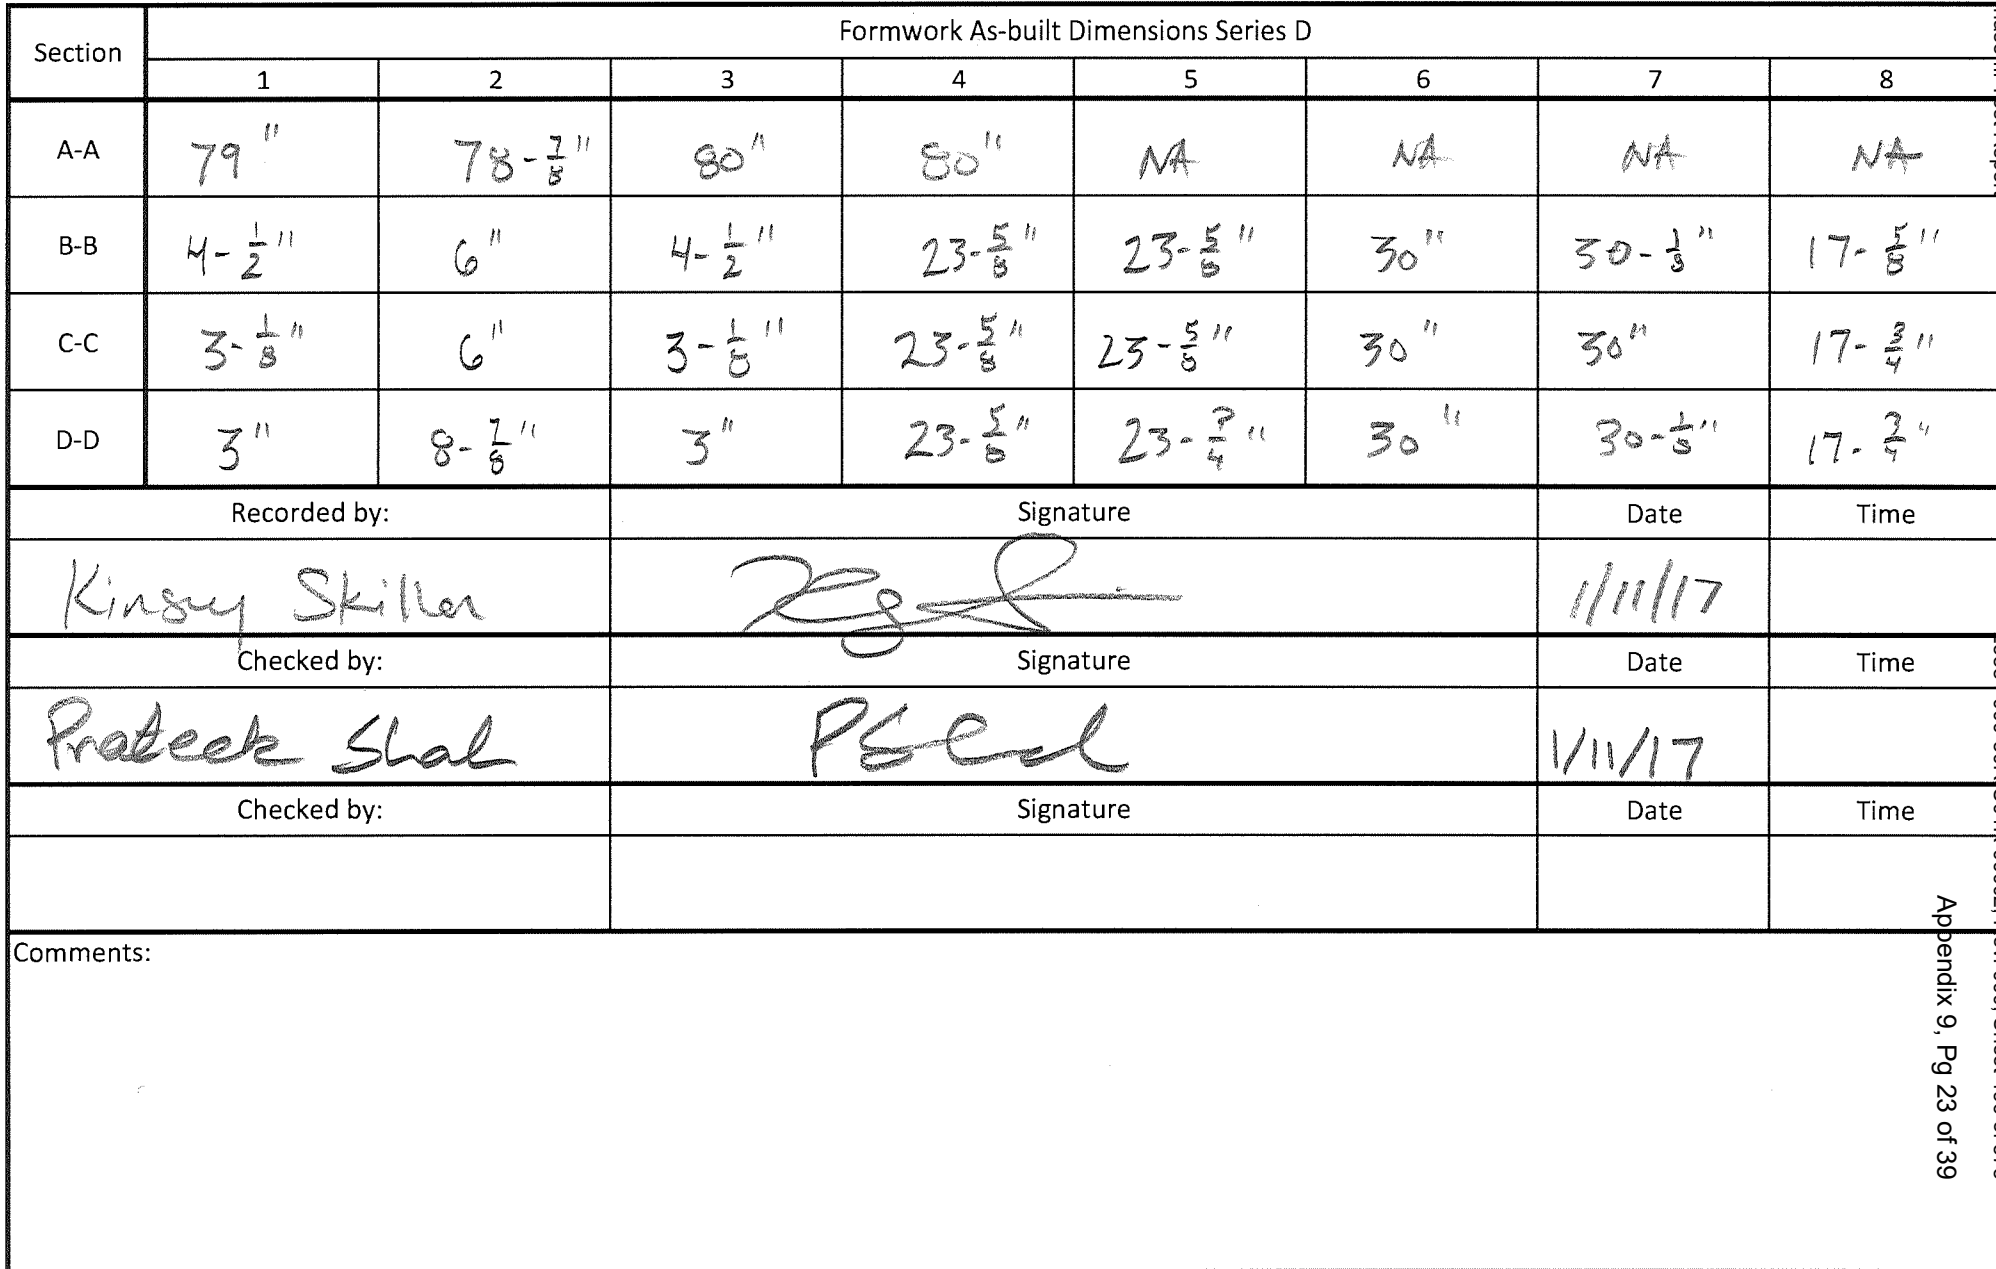 Section Formwork As-built Dimensions Series D
1 2 3 4 5 6 7 8
A-A 79" 78-7/8" 80" 80" NA NA NA NA
B-B 4-1/2" 6" 4-1/2" 23-5/8" 23-5/8" 30" 30-1/8" 17-5/8"
C-C 3-1/8" 6" 3-1/8" 23-5/8" 23-5/8" 30" 30" 17-3/4"
D-D 3" 8-7/8" 3" 23-5/8" 23-3/4" 30" 30-1/8" 17-3/4"
Recorded by: Signature Date Time
1/11/17
Checked by: Signature Date Time
Prateek Shah 1/11/17
Checked by: Signature Date Time
Comments:
Appendix 9, Pg 23 of 39